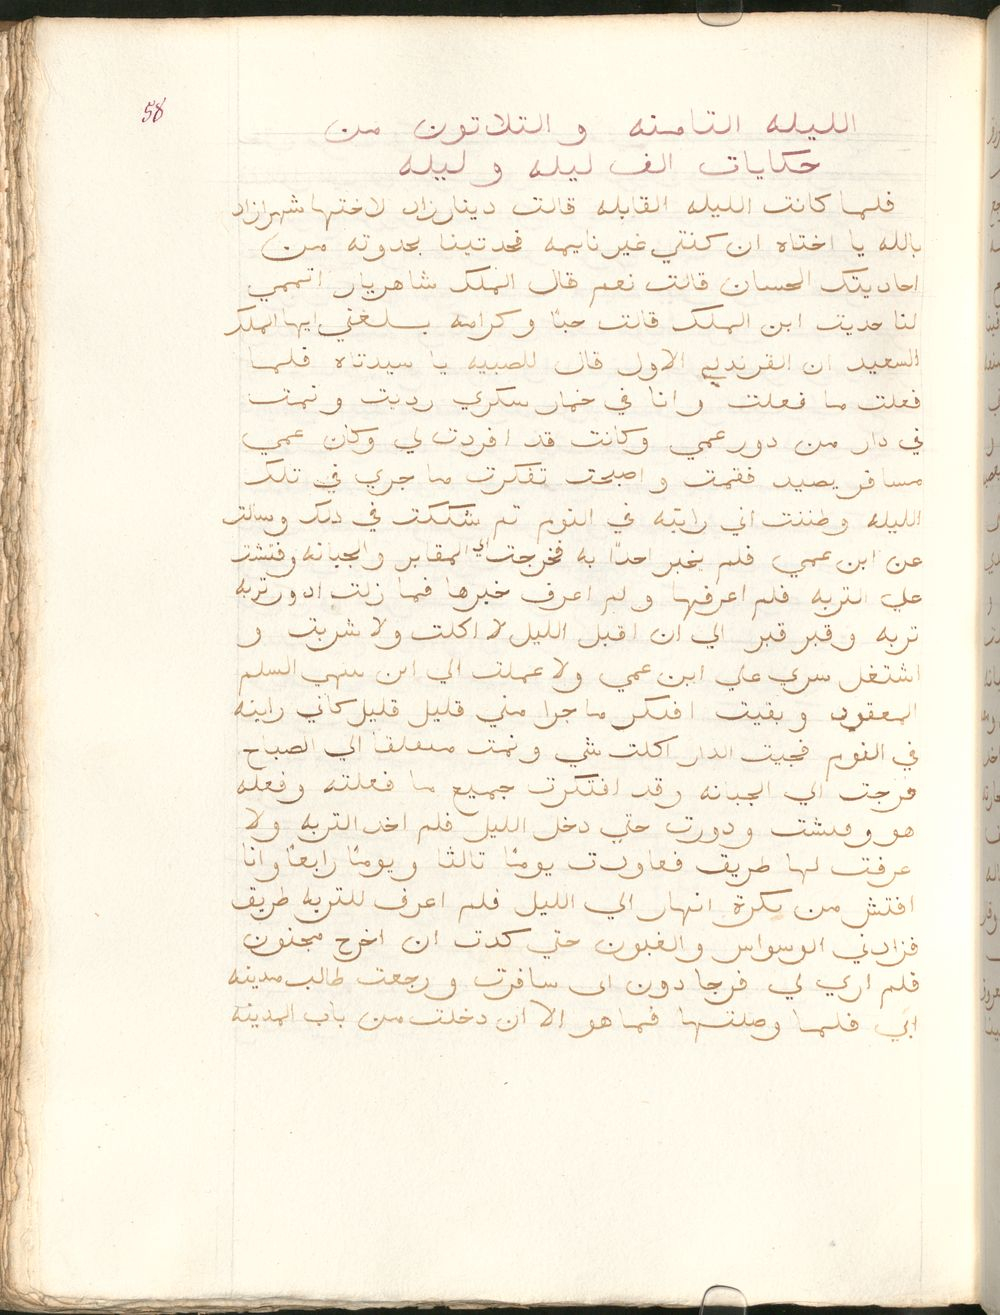 58
الليله التامنه و التلاتون من
حكايات الف ليله و ليله
فلما كانت الليله القابله قالت دينارزاد لاختها شهرازاد
بالله يا اختاه ان كنتي غير نايمه فحدتينا بحدوته من
احاديتك الحسان قالت نعم قال الملك شاهريار اتممي
لنا حديت ابن الملك قالت حبًا و كرامه بلغني ايها الملك
السعيد ان القرنديم الاول قال للصبيه يا سيدتاه فلما
فعلت ما فعلت وانا في خمار سكري رديت و نمت
في دار من دور عمي وكانت قد افردت لي وكان عمي
مسافر يصيد فقمت و اصبحت تفكرت ما جري في تلك
الليله وظننت اني رايته في النوم تم شككت في دلك وسالت
عن ابن عمي فلم يخبر احدًا به فخرجت الي المقابر والجبانه وفتشت
علي التربه فلم اعرفها و لم اعرف خبرها فما زلت ادور تربه
تربه و قبر قبر الي ان اقبل الليل لا اكلت ولا شربت و
اشتغل سري علي ابن عمي ولا عملت الي اين منهي السلم
المعقود و بقيت افتكر ما جرا مني قليل قليل كاني رايته
في النوم فجيت الدار اكلت شي و نمت الي الصباح
فرجت الي الجبانه وقد افتكرت جميع ما فعلته وفعله
هو وفتشت ودورت حتي دخل الليل فلم اجد التربه ولا
عرفت لها طريق فعاودت يومًا تالتا و يومًا رابعًا وانا
افتش من بكرة انهار الي الليل فلم اعرف للتربه طريق
فزادني الوسواس والغبون حتي كدت ان اخرج مجنون
فلم اري لي فرجا دون ان سافرت و رجعت طالب مدينه
ابي فلما وصلتها فما هو الا ان دخلت من باب المدينه